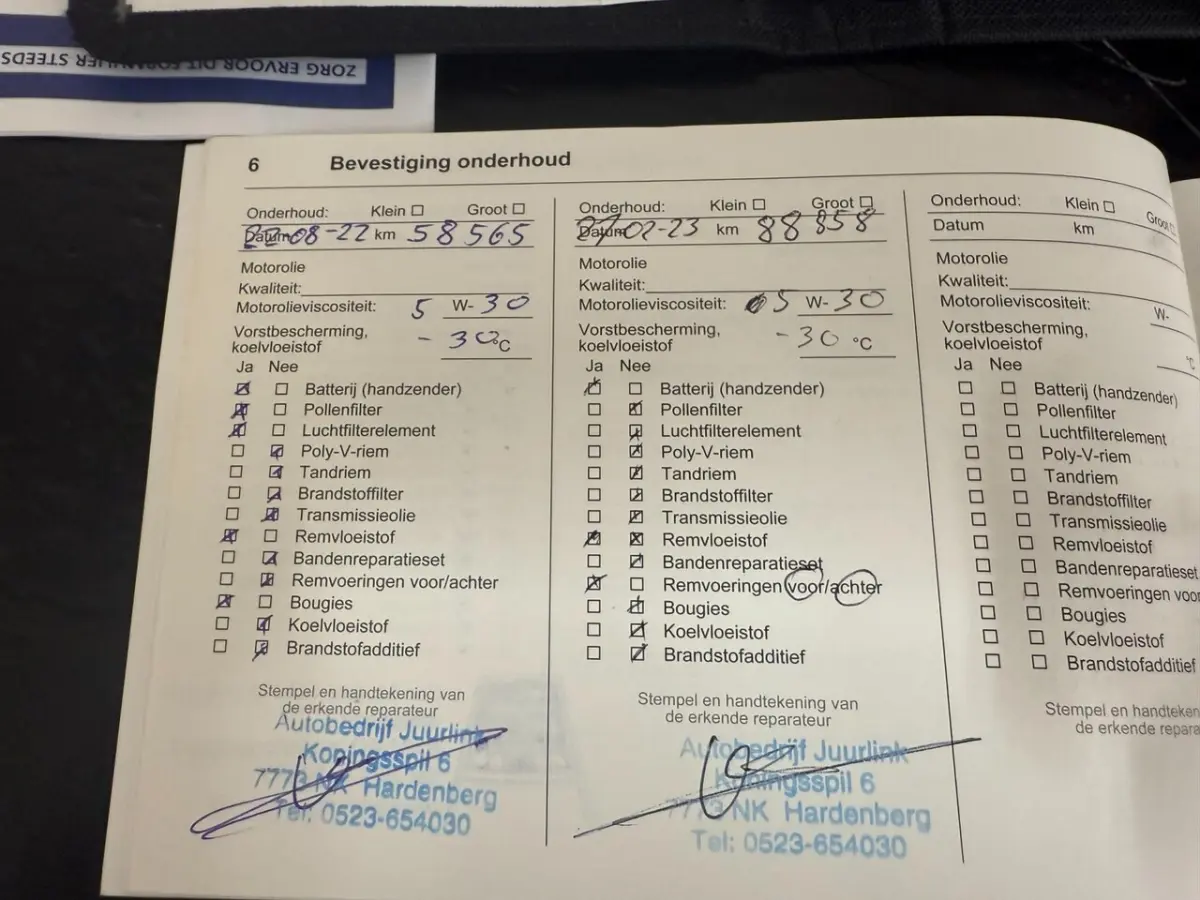 ZORG ERVOOR DIT STEEDS
6 Bevestiging onderhoud
Onderhoud: Klein ☐ Groot ☐
Datum 22-08-22 km 58565
Motorolie
Kwaliteit:
Motorolieviscositeit: 5 W- 30
Vorstbescherming,
koelvloeistof - 30 °C
Ja Nee
☒ ☐ Batterij (handzender)
☒ ☐ Pollenfilter
☒ ☐ Luchtfilterelement
☐ ☒ Poly-V-riem
☐ ☒ Tandriem
☐ ☒ Brandstoffilter
☐ ☒ Transmissieolie
☒ ☐ Remvloeistof
☐ ☒ Bandenreparatieset
☐ ☒ Remvoeringen voor/achter
☒ ☐ Bougies
☐ ☒ Koelvloeistof
☐ ☒ Brandstofadditief
Stempel en handtekening van
de erkende reparateur
Autobedrijf Juurlink
Koningsspil 6
7773 NK Hardenberg
Tel: 0523-654030
Onderhoud: Klein ☐ Groot ☐
Datum 27-02-23 km 88858
Motorolie
Kwaliteit:
Motorolieviscositeit: 5 W- 30
Vorstbescherming,
koelvloeistof - 30 °C
Ja Nee
☒ ☐ Batterij (handzender)
☐ ☒ Pollenfilter
☐ ☒ Luchtfilterelement
☐ ☒ Poly-V-riem
☐ ☒ Tandriem
☐ ☒ Brandstoffilter
☐ ☒ Transmissieolie
☒ ☒ Remvloeistof
☐ ☒ Bandenreparatieset
☒ ☐ Remvoeringen voor/achter
☐ ☒ Bougies
☐ ☒ Koelvloeistof
☐ ☒ Brandstofadditief
Stempel en handtekening van
de erkende reparateur
Autobedrijf Juurlink
Koningsspil 6
7773 NK Hardenberg
Tel: 0523-654030
Onderhoud: Klein ☐ Groot ☐
Datum km
Motorolie
Kwaliteit:
Motorolieviscositeit: W-
Vorstbescherming,
koelvloeistof °C
Ja Nee
☐ ☐ Batterij (handzender)
☐ ☐ Pollenfilter
☐ ☐ Luchtfilterelement
☐ ☐ Poly-V-riem
☐ ☐ Tandriem
☐ ☐ Brandstoffilter
☐ ☐ Transmissieolie
☐ ☐ Remvloeistof
☐ ☐ Bandenreparatieset
☐ ☐ Remvoeringen voor
☐ ☐ Bougies
☐ ☐ Koelvloeistof
☐ ☐ Brandstofadditief
Stempel en handteken
de erkende repara